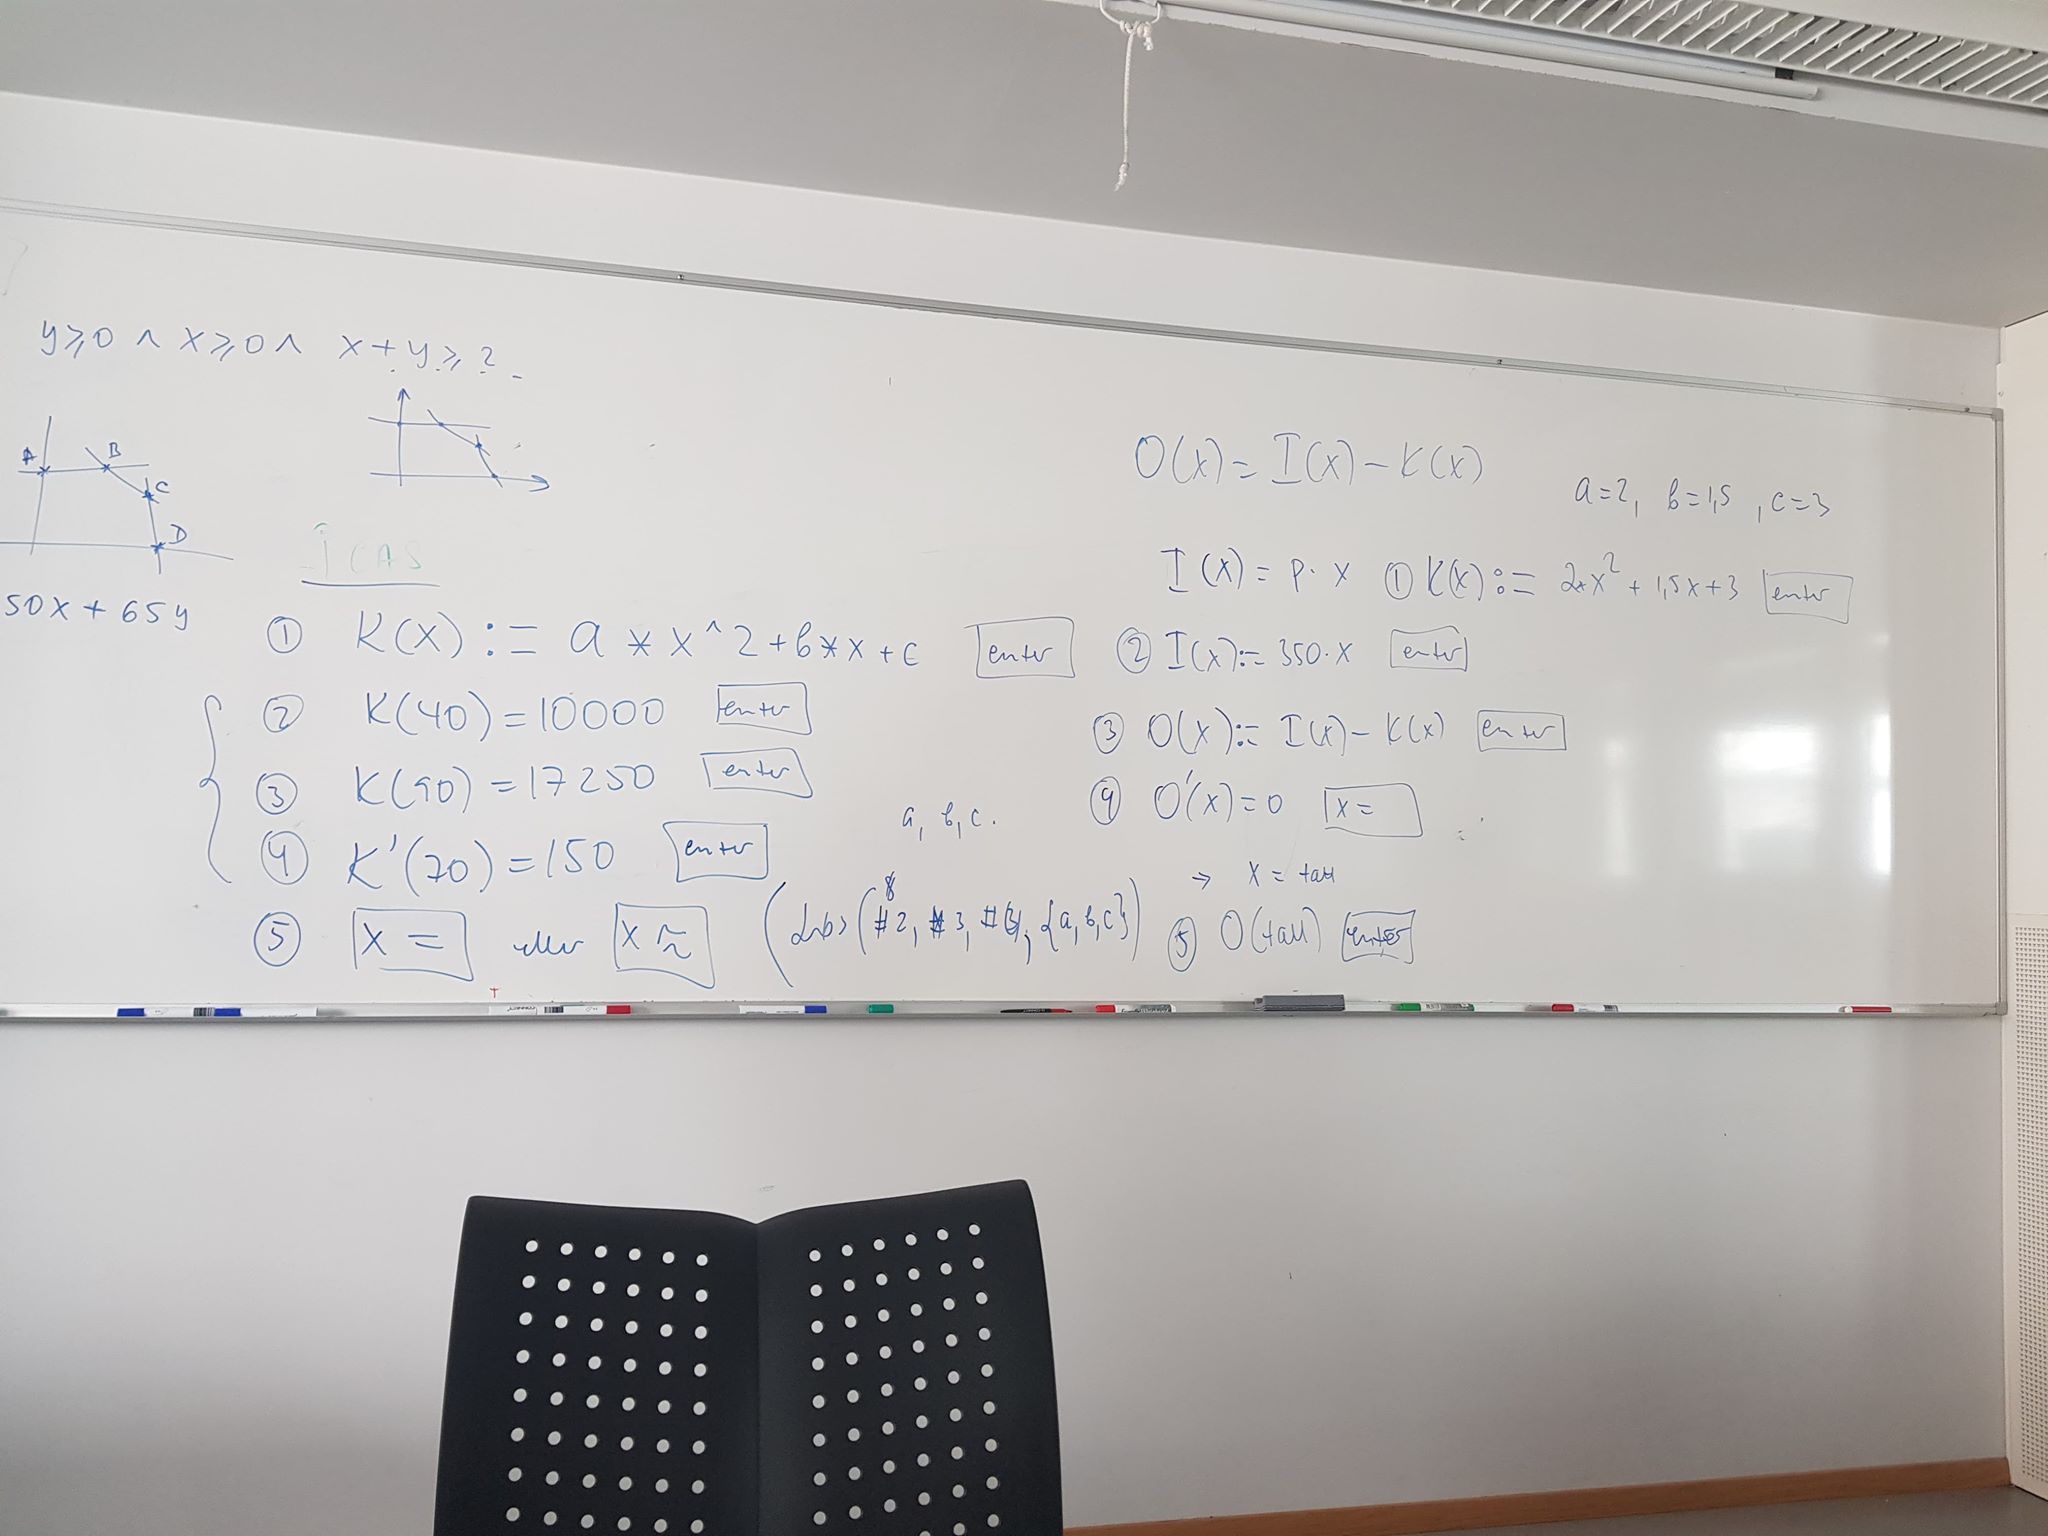 y ⩾ 0 ∧ x ⩾ 0 ∧ x + y ⩾ ?
A B C D
50x + 65y
I CAS
① K(x) := a * x ^ 2 + b * x + c enter
② K(40) = 10000 enter
③ K(90) = 17250 enter
④ K'(70) = 150 enter
a, b, c.
⑤ x = eller x ≈
#2, #3, {a, b, c}
O(x) = I(x) - K(x)
a = 2, b = 1,5, c = 3
I(x) = p · x
① K(x) := 2*x² + 1,5x + 3 enter
② I(x) := 350 · x enter
③ O(x) := I(x) - K(x) enter
④ O'(x) = 0 x =
→ x = tall
⑤ O(tall) enter